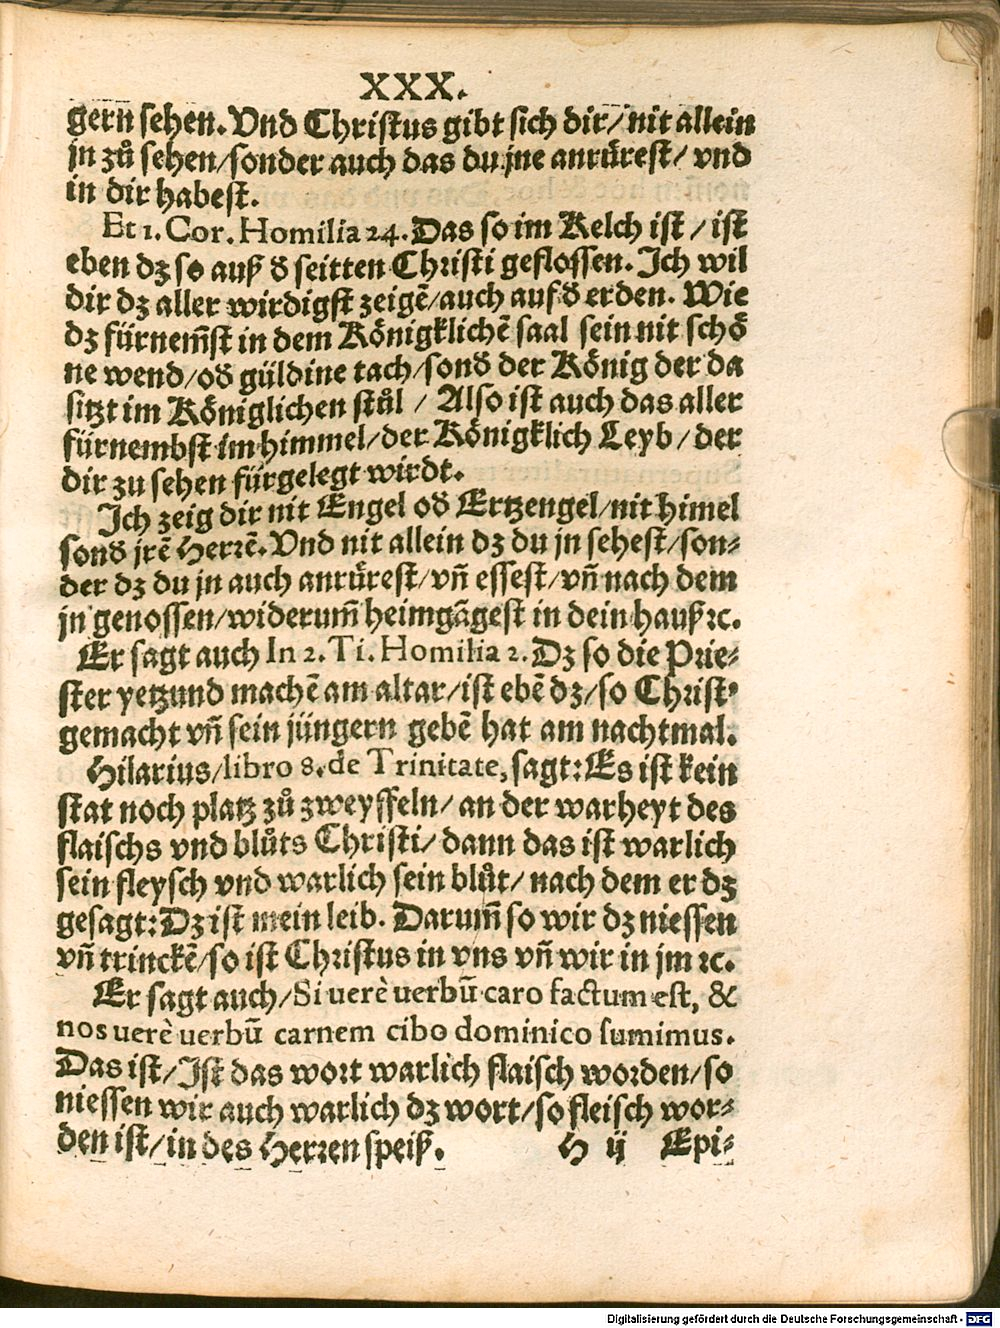 XXX.
gern sehen. Vnd Christus gibt sich dir/ nit allein
jn zů sehen/ sonder auch das du jne anrürest/ vnd
in dir habest.
Et 1. Cor. Homilia 24. Das so im Kelch ist / ist
eben dz so auß ď seitten Christi geflossen. Ich wil
dir dz aller wirdigst zeigē/ auch auf ď erden. Wie
dz fürnem̄st in dem Königklichē saal sein nit schö
ne wend/ oď güldine tach/ sonď der König der da
sitzt im Königlichen stůl / Also ist auch das aller
fürnembst im himmel/ der Königklich Leyb / der
dir zu sehen fürgelegt wirdt.
Ich zeig dir nit Engel oď Ertzengel/ nit himel
sonď jrē Herrē. Vnd nit allein dz du jn sehest/ son⸗
der dz du jn auch anrürest/ vñ essest/ vñ nach dem
jn genossen/ widerum̄ heimgāgest in dein hauß ꝛc.
Er sagt auch In 2. Ti. Homilia 2. Dz so die Prie⸗
ster yetzund machē am altar/ ist ebē dz/ so Christ⁹
gemacht vñ sein jüngern gebē hat am nachtmal.
Hilarius/ libro 8. de Trinitate, sagt: Es ist kein
stat noch platz zů zweyffeln/ an der warheyt des
flaischs vnd blůts Christi/ dann das ist warlich
sein fleysch vnd warlich sein blůt/ nach dem er dz
gesagt: Dz ist mein leib. Darum̄ so wir dz niessen
vñ trinckē/ so ist Christus in vns vñ wir in jm ꝛc.
Er sagt auch/ Si uerè uerbū caro factum est, &
nos uerè uerbū carnem cibo dominico sumimus.
Das ist/ Ist das wort warlich flaisch worden/ so
niessen wir auch warlich dz wort/ so fleisch wor⸗
den ist/ in des Herren speiß. H ij Epi⸗
Digitalisierung gefördert durch die Deutsche Forschungsgemeinschaft - DFG